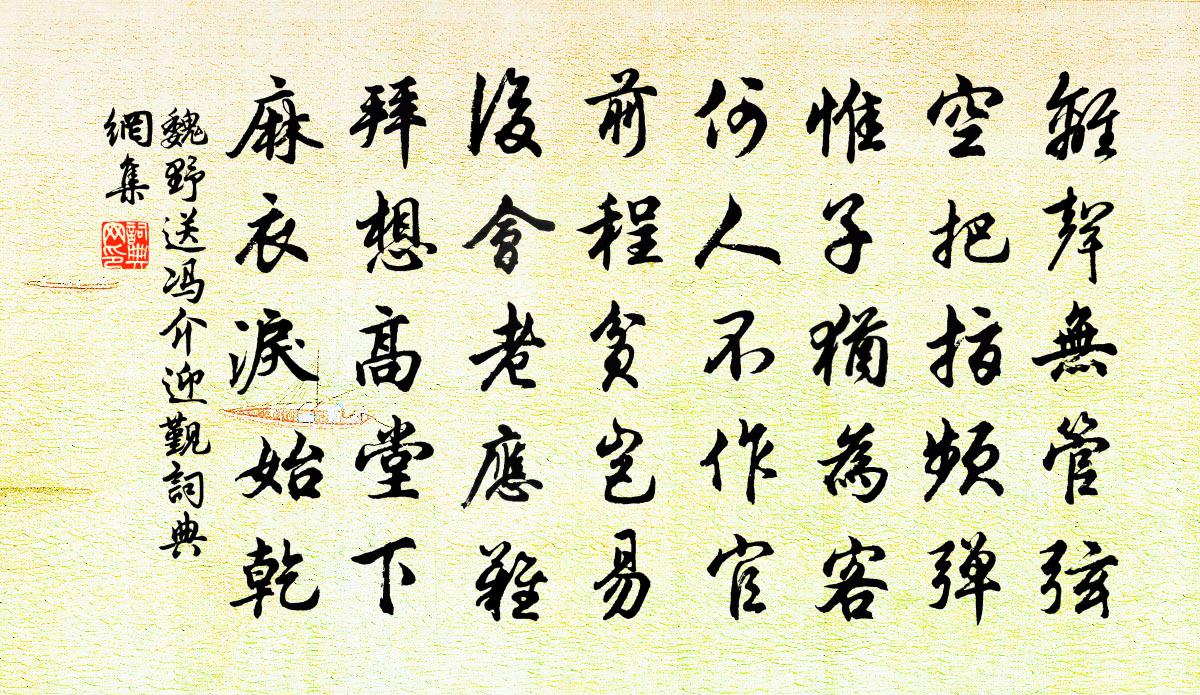 離聲無管弦
空把指頻弹
惟子猶為客
何人不作官
前程貧豈易
後會老應難
拜想高堂下
麻衣淚始乾
魏野送冯介迎觐詞典
網集
詞典
网印